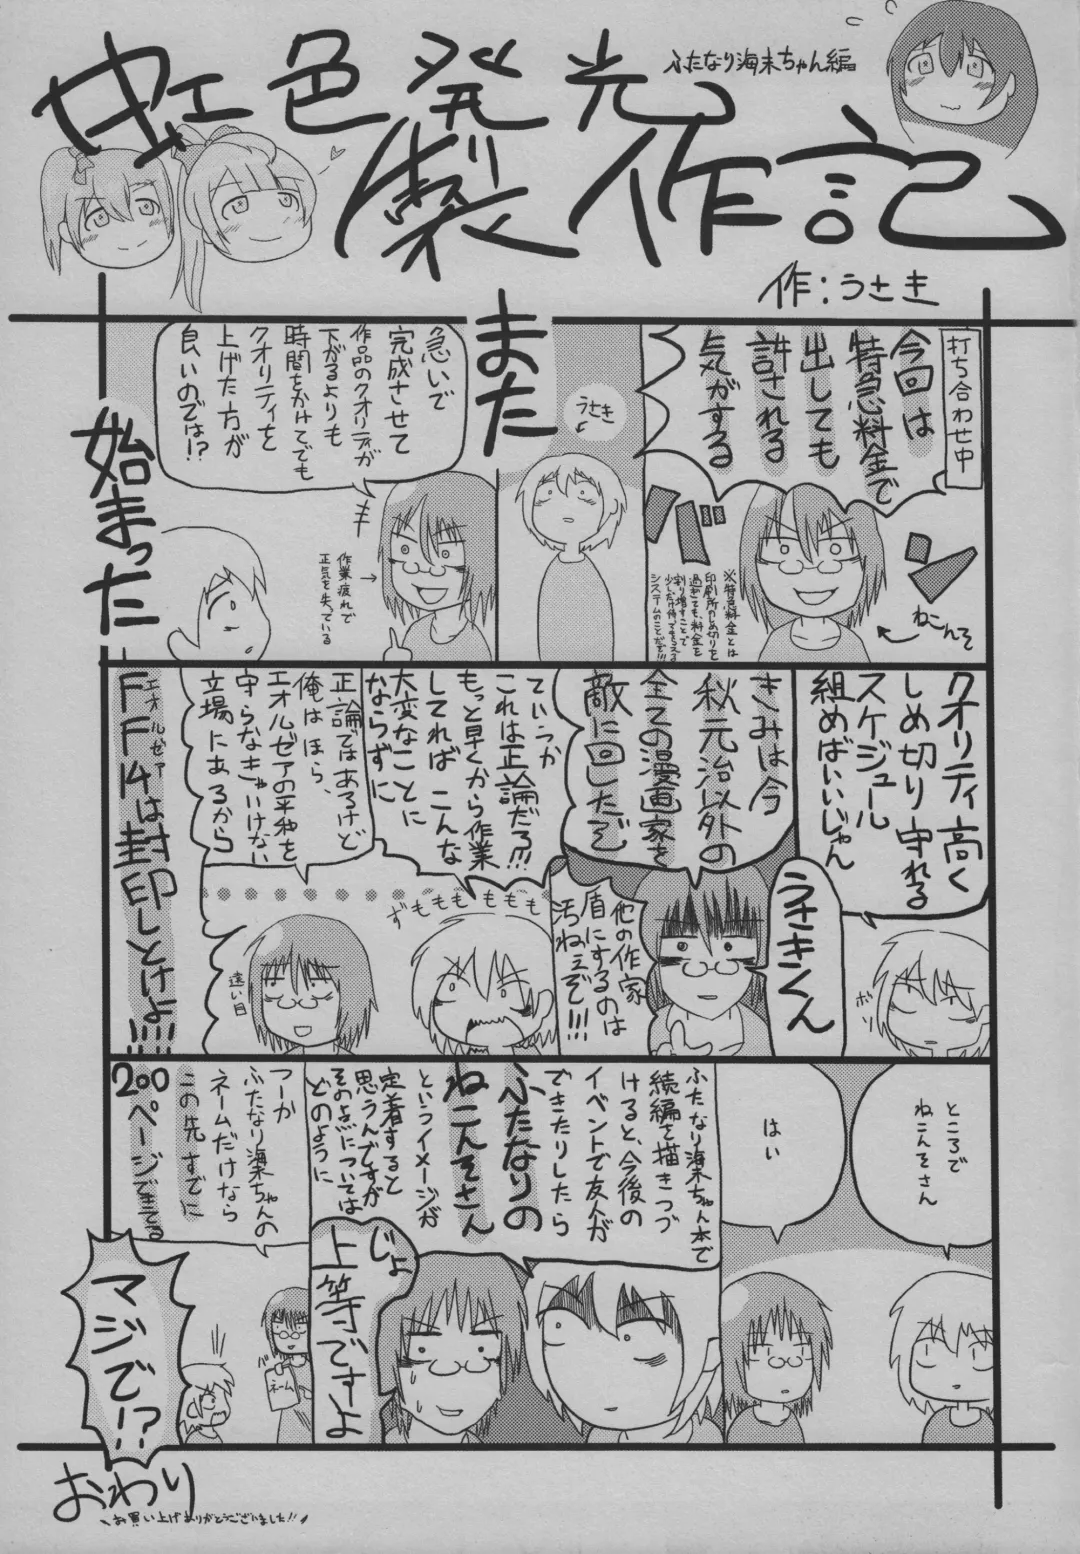 虹色発光
製作記
ふたなり海未ちゃん編
作:うさき
打ち合わせ中
今回は
特急料金で
出しても
許される
気がする
バ
ン
ねこんそ
※特急料金とは
印刷所のしめ切りを
過ぎても、料金を
割り増すことで
少しだけ待ってもらえる
システムのことだぞ!!!
うさき
また
始まった
急いで
完成させて
作品のクオリティが
下がるよりも
時間をかけてでも
クオリティを
上げた方が
良いのでは!?
キ
作業疲れで
正気を失っている
クオリティ高く
しめ切り守れる
スケジュール
組めばいいじゃん
ボソ
うさきくん
きみは今
秋元治以外の
全ての漫画家を
敵に回したぞ
他の作家
盾にするのは
汚ねぇぞ!!!
ていうか
これは正論だろ!!!
もっと早くから作業
してれば こんな
大変なことに
ならずに
ずももももももも
正論ではあるけど
俺はほら、
エオルゼアの平和を
守らなきゃいけない
立場にあるから
遠い目
エオルゼア
FF14は封印しとけよ!!!!
ところで
ねこんそさん
はい
ふたなり海未ちゃん本で
続編を描きつづ
けると、今後の
イベントで友人が
できたりしたら
ふたなりの
ねこんそさん
というイメージが
定着すると
思うんですが
そのよについては
どのように
じょ
上等ですよ
つーか
ふたなり海未ちゃんの
ネームだけなら
この先すでに
200ページできてる
バ
ネーム
マジで!?
おわり
\お買い上げありがとうございました!!/